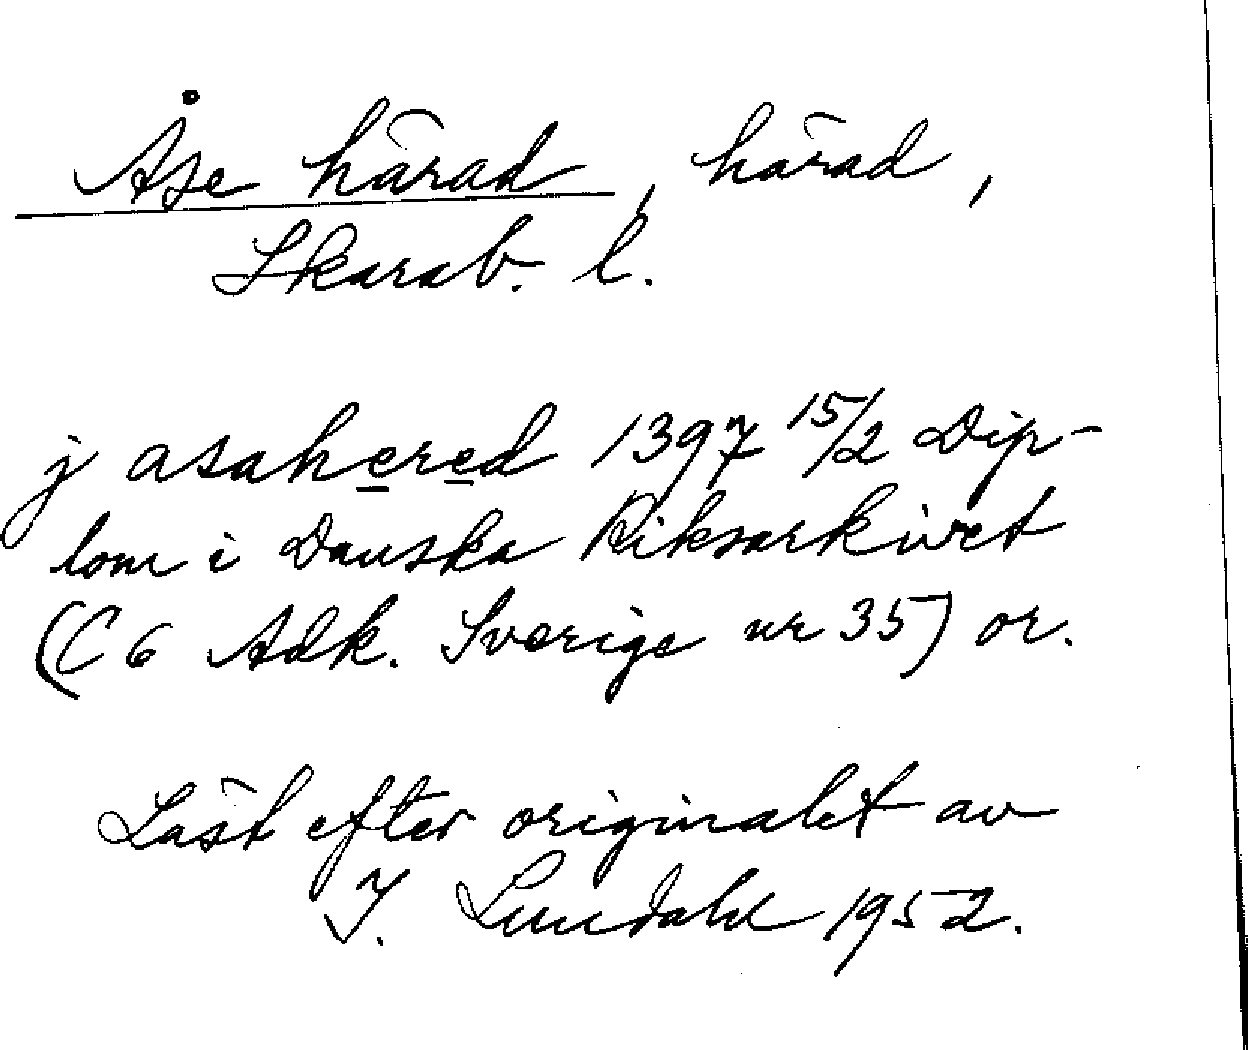 Åse härad, härad,
Skarab. l.
j asahered 1397 15/2 Dip-
lom i Danska Riksarkivet
(C 6 Adk. Sverige nr 35) or.
Läst efter originalet av
I. Lundahl 1952.